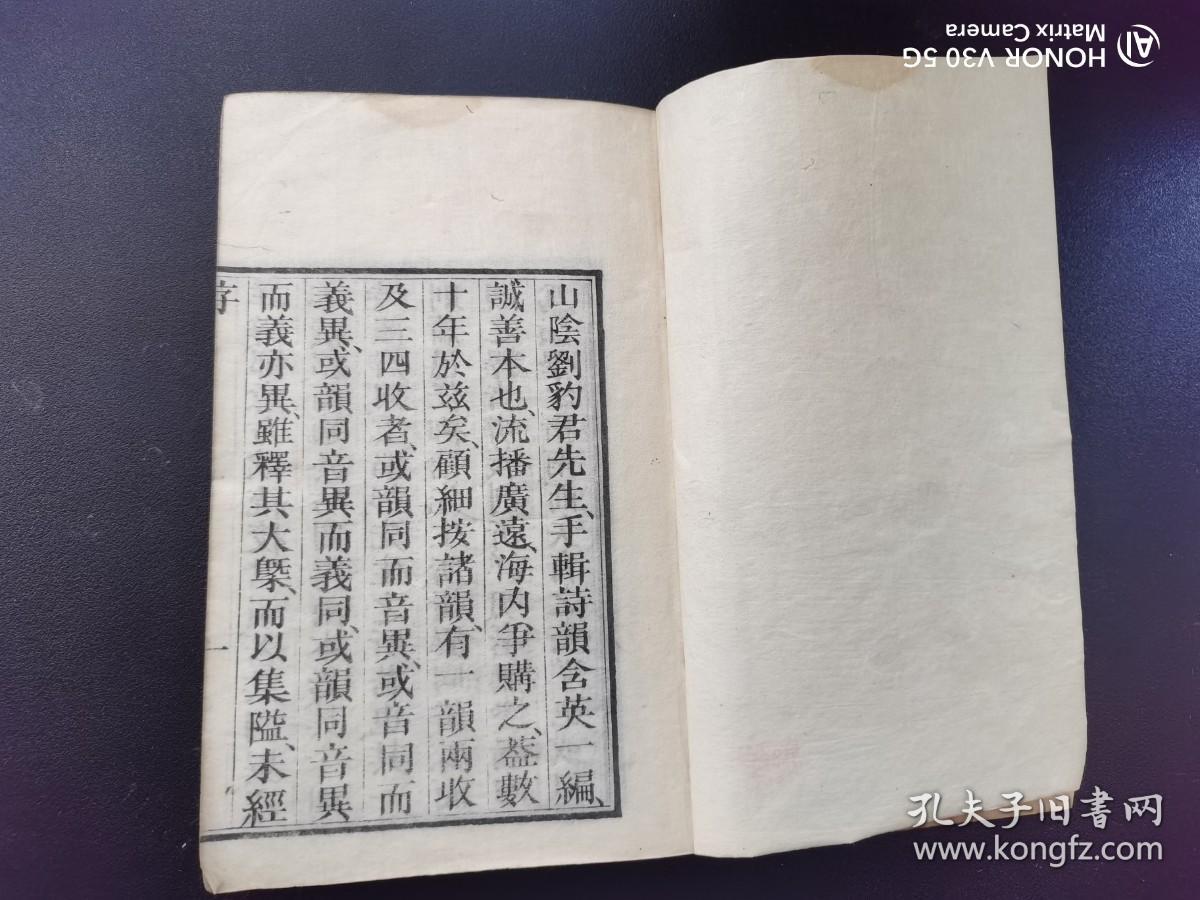 山陰劉豹君先生、手輯詩韻含英一編、
誠善本也、流播廣遠、海内爭購之、葢數
十年於兹矣、顧細按諸韻、有一韻兩收
及三四收者、或韻同而音異、或音同而
義異、或韻同音異而義同、或韻同音異
而義亦異、雖釋其大槩、而以集隘、未經
序
一
HONOR V30 5G
Matrix Camera
AI
孔夫子旧书网
www.kongfz.com